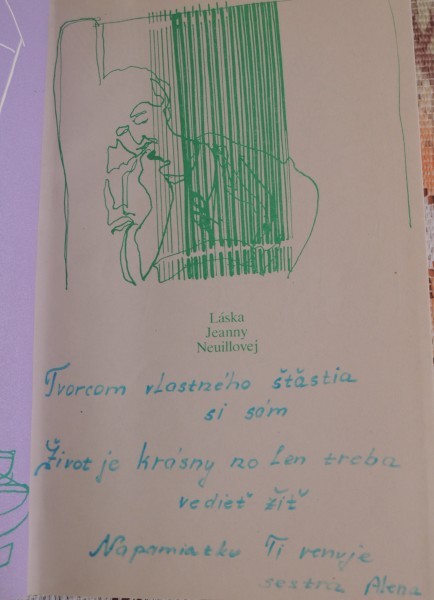 Láska
Jeanny
Neuillovej
Tvorcom vlastného šťastia
si sám
Život je krásny no len treba
vedieť žiť
Na pamiatku Ti venuje
sestra Alena